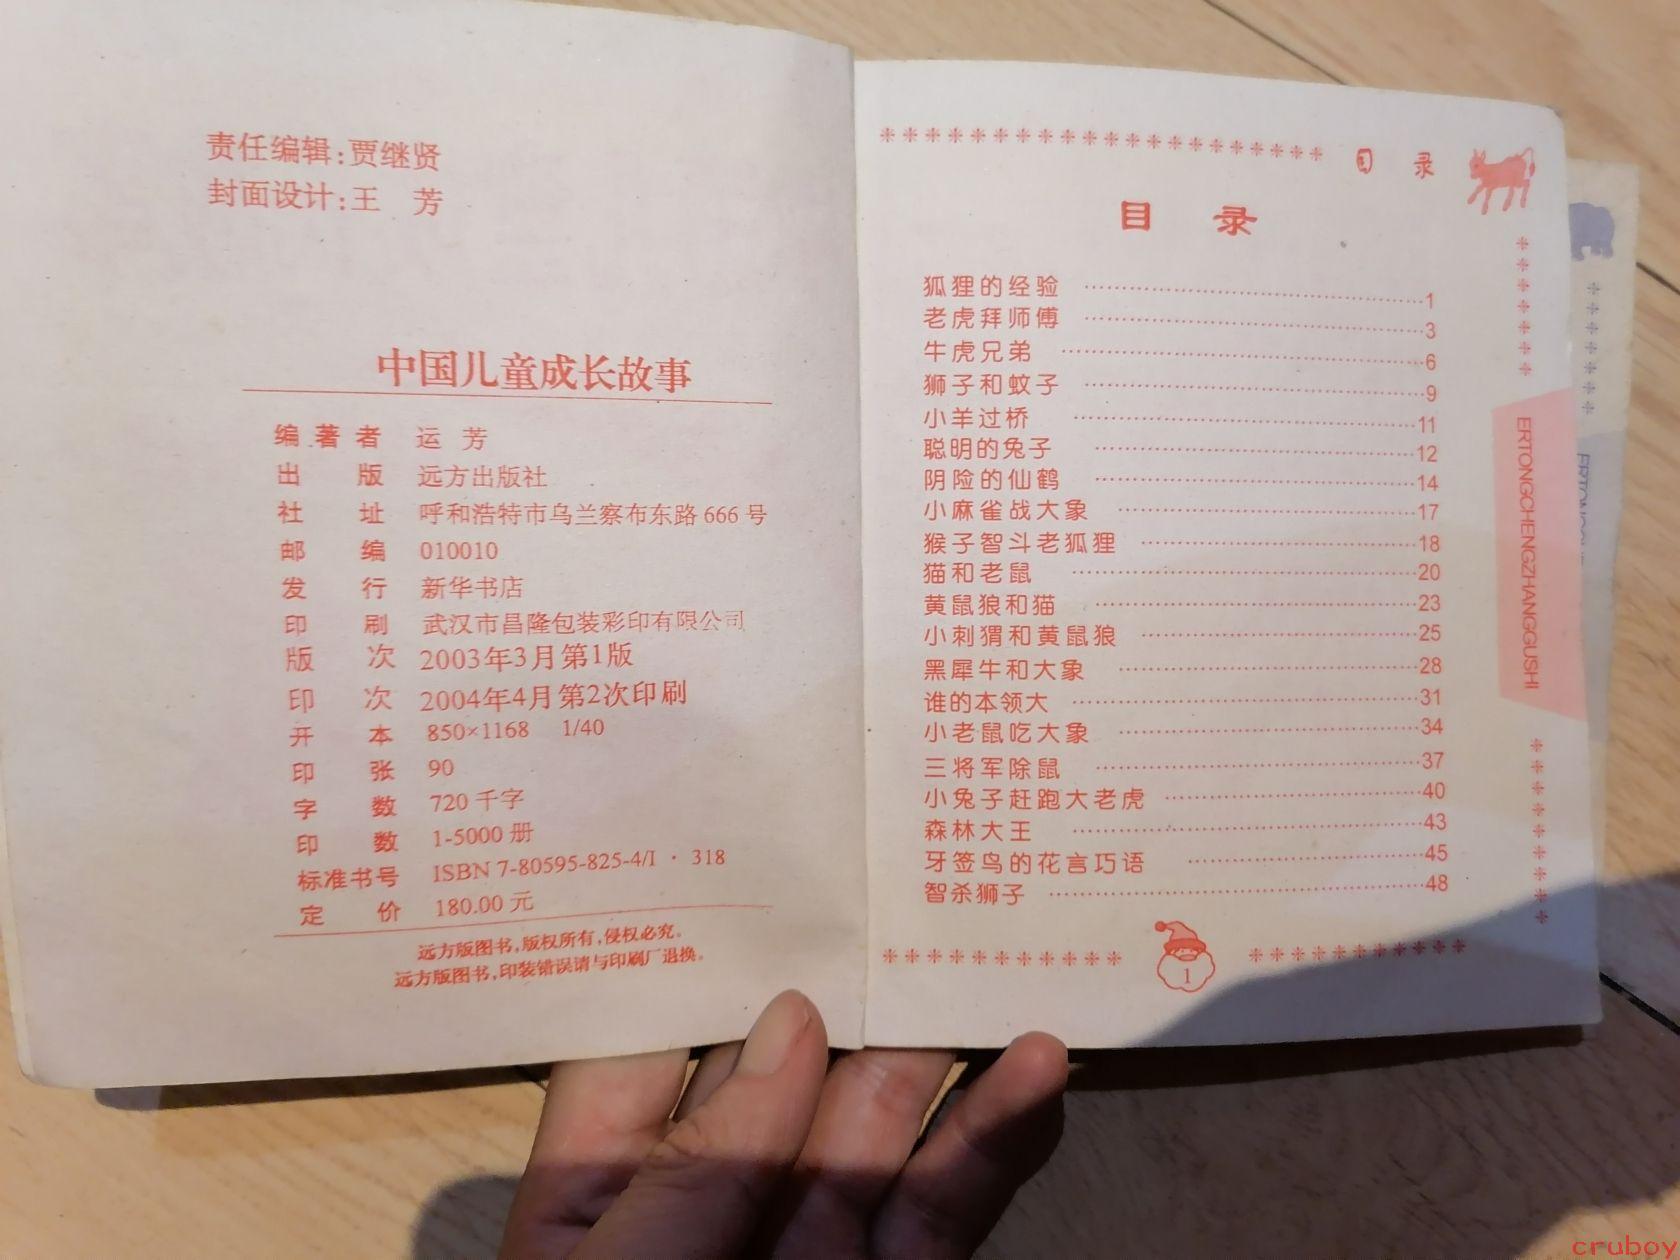 责任编辑:贾继贤
封面设计:王 芳
中国儿童成长故事
编著者 运 芳
出版 远方出版社
社址 呼和浩特市乌兰察布东路 666 号
邮编 010010
发行 新华书店
印刷 武汉市昌隆包装彩印有限公司
版次 2003年3月第1版
印次 2004年4月第2次印刷
开本 850×1168 1/40
印张 90
字数 720 千字
印数 1-5000 册
标准书号 ISBN 7-80595-825-4/I · 318
定价 180.00 元
远方版图书,版权所有,侵权必究。
远方版图书,印装错误请与印刷厂退换。
目 录
目 录
狐狸的经验 ……………………1
老虎拜师傅 ……………………3
牛虎兄弟 ……………………6
狮子和蚊子 ……………………9
小羊过桥 ……………………11
聪明的兔子 ……………………12
阴险的仙鹤 ……………………14
小麻雀战大象 ……………………17
猴子智斗老狐狸 ……………………18
猫和老鼠 ……………………20
黄鼠狼和猫 ……………………23
小刺猬和黄鼠狼 ……………………25
黑犀牛和大象 ……………………28
谁的本领大 ……………………31
小老鼠吃大象 ……………………34
三将军除鼠 ……………………37
小兔子赶跑大老虎 ……………………40
森林大王 ……………………43
牙签鸟的花言巧语 ……………………45
智杀狮子 ……………………48
1
ERTONGCHENGZHANGGUSHI
cruboy